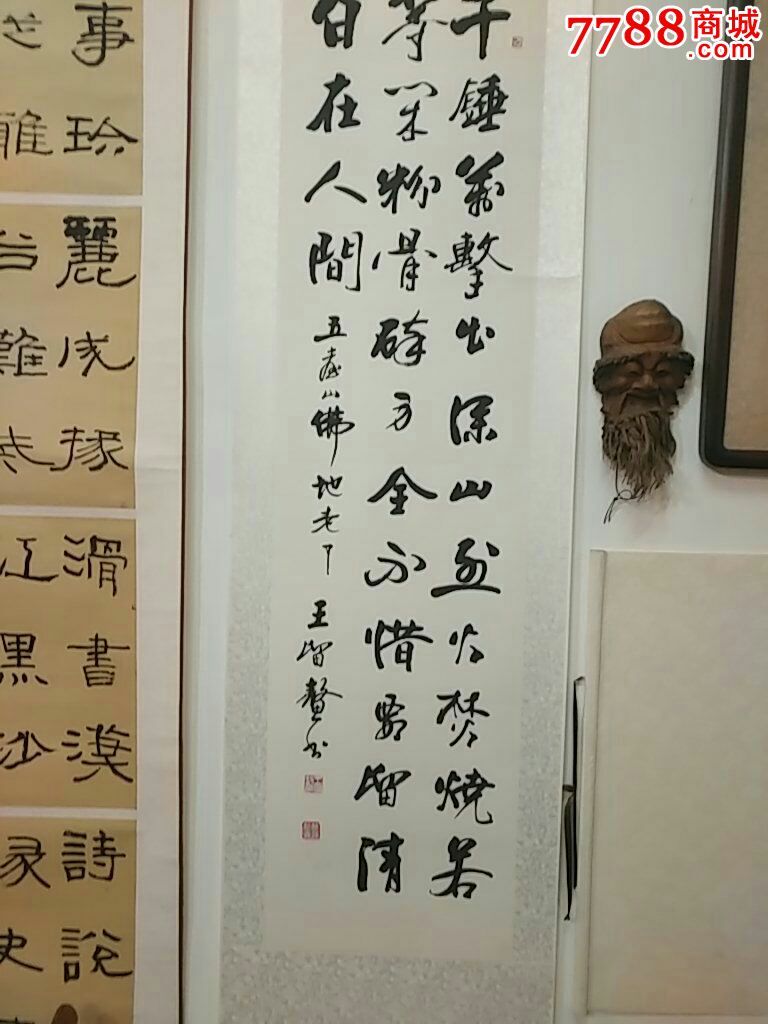 7788商城
.com
千錘萬擊出深山烈火焚燒若
等閑粉骨碎身全不惜要留清
白在人間
五臺山佛地老丁 王留鰲書
事玲麗成掾滑書漠詩說
雅台難江黑沙史